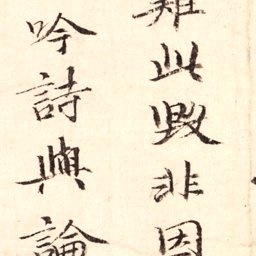 難此毀非因
吟詩興論